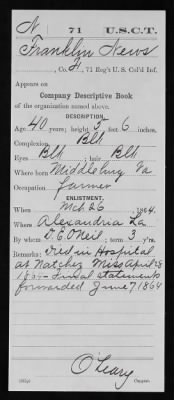 N 71 U.S.C.T.
Franklin News
, Co. F, 71 Reg't U. S. Col'd Inf.
Appears on
Company Descriptive Book
of the organization named above.
DESCRIPTION.
Age 40 years; height 5 feet 6 inches.
Complexion Blk
Eyes Blk ; hair Blk
Where born Middleburg Va
Occupation farmer
ENLISTMENT.
When Mch 26 , 1864.
Where Alexandria La
By whom D. E. O'Neil ; term 3 y'rs.
Remarks: Died in Hospital
at Natchez Miss April 28
1864 Final Statements
forwarded June 7 1864
O'Leary
Copyist.